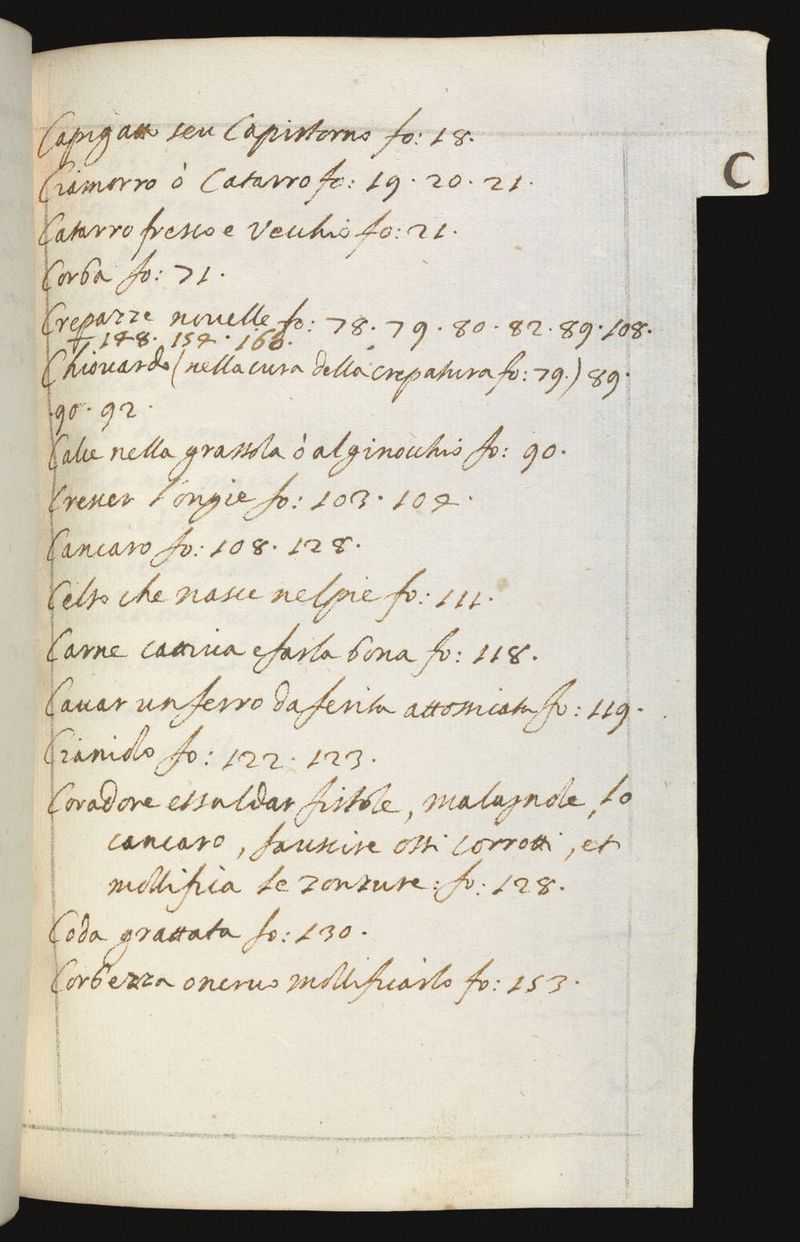 C
Capigatto seu Capistorno fo: 18.
Ciamorro ò Catarro fo: 19. 20. 21.
Catarro fresco e Vecchio fo: 21.
Corba fo: 71.
Crepazze novelle fo: 78. 79. 80. 82. 89. 108.
148. 154. 160.
Chiovardo (nella cura della crepatura fo: 79.) 89.
90. 92.
Calie nella grassola ò al ginocchio fo: 90.
Crescer l'ongie fo: 103. 104.
Cancaro fo: 108. 128.
Celso che nasce nel piè fo: 111.
Carne cattiva e farla bona fo: 118.
Cavar un ferro da ferita attossicata fo: 119.
fo: 122. 123.
Coradore et saldar fistole, malagnole, lo
cancaro, fa uscire ossi corrotti, et
mollifica le zonture: fo: 128.
Coda grattata fo: 130.
Corbezza o nervo mollificarlo fo: 153.